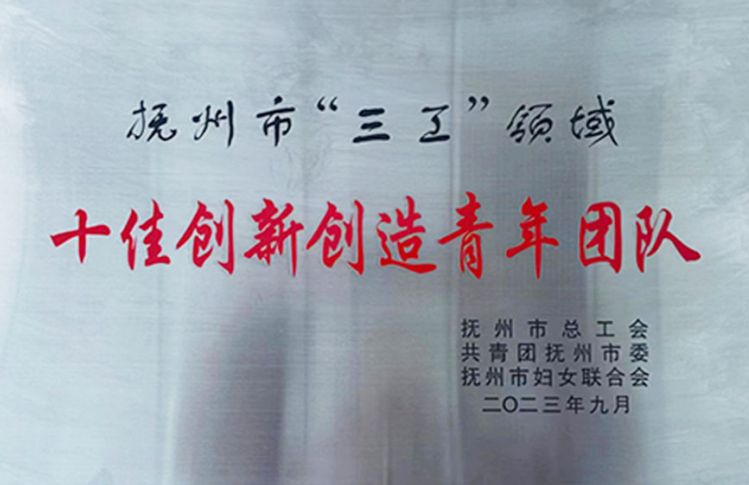 抚州市“三工”领域
十佳创新创造青年团队
抚州市总工会
共青团抚州市委
抚州市妇女联合会
二〇二三年九月